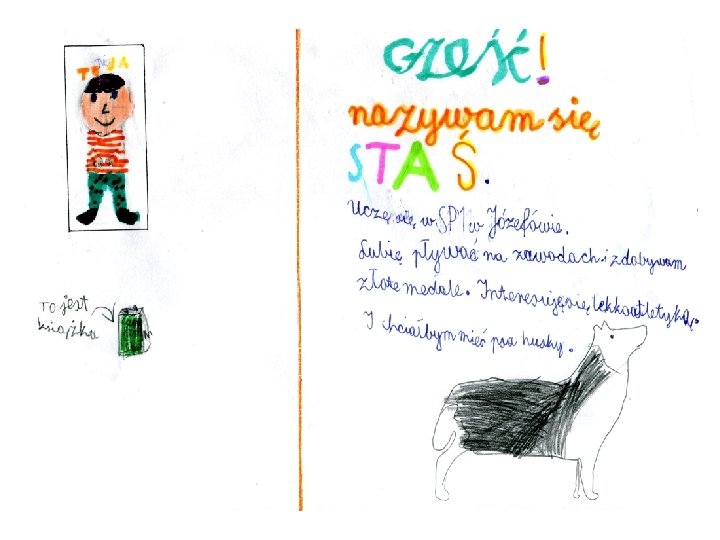 TO JA
TO jest
książka
CZEŚĆ!
nazywam się
STAŚ.
Uczę się w SP1 w Józefówie.
Lubię pływać na zawodach i zdobywam
złote medale. Interesuję się lekkoatletyką.
I chciałbym mieć psa husky.